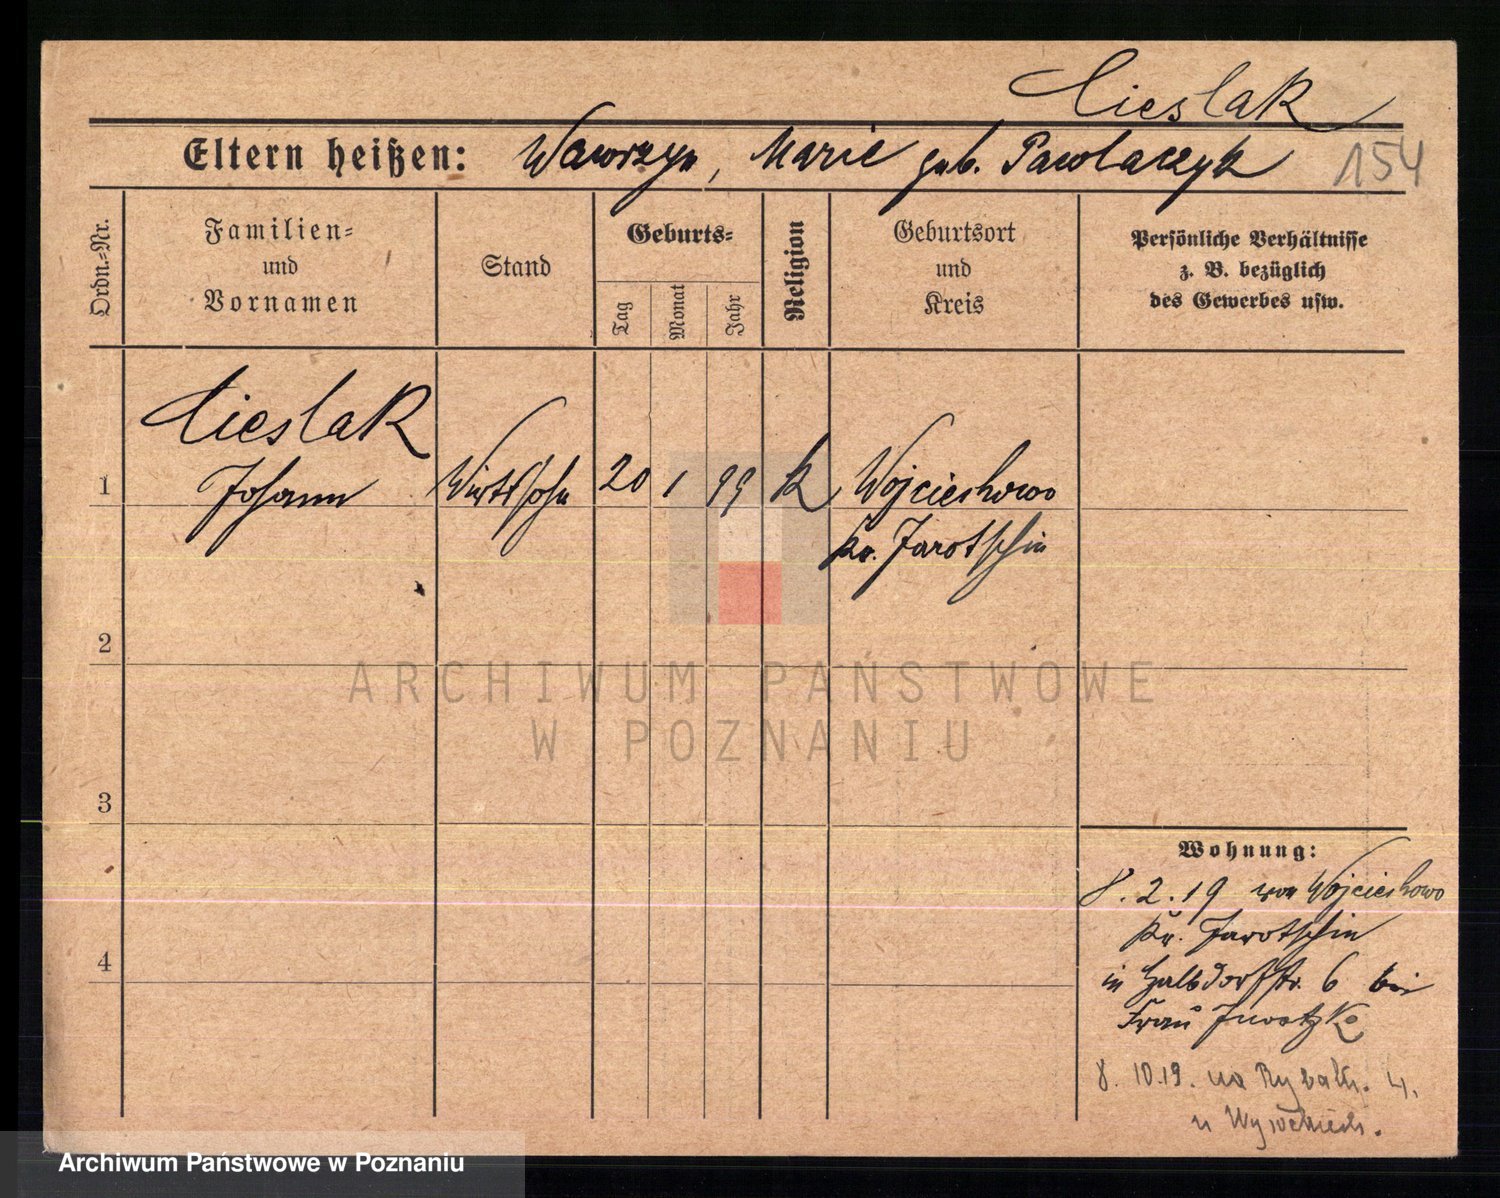 Cieslak
Eltern heißen: Wawrzyn, Marie geb. Pawlaczyk 154
Ordn.-Nr.
Familien-
und
Vornamen
Stand
Geburts-
Tag
Monat
Jahr
Religion
Geburtsort
und
Kreis
Persönliche Verhältnisse
z. B. bezüglich
des Gewerbes usw.
Cieslak
1 Johann Wirtssohn 20 1 99 K Wojciechowo
Kr. Jarotschin
2
3
4
Wohnung:
8.2.19 von Wojciechowo
Kr. Jarotschin
in Halbdorfstr. 6 bei
Frau
8.10.19. na 4.
u
ARCHIWUM PAŃSTWOWE
W POZNANIU
Archiwum Państwowe w Poznaniu